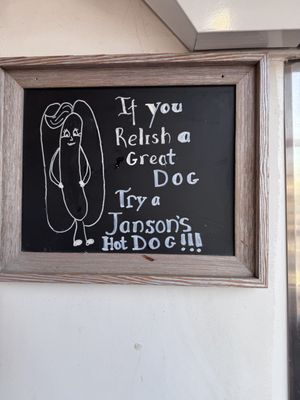 If you
Relish a
Great
Dog
Try a
Janson's
Hot Dog!!!